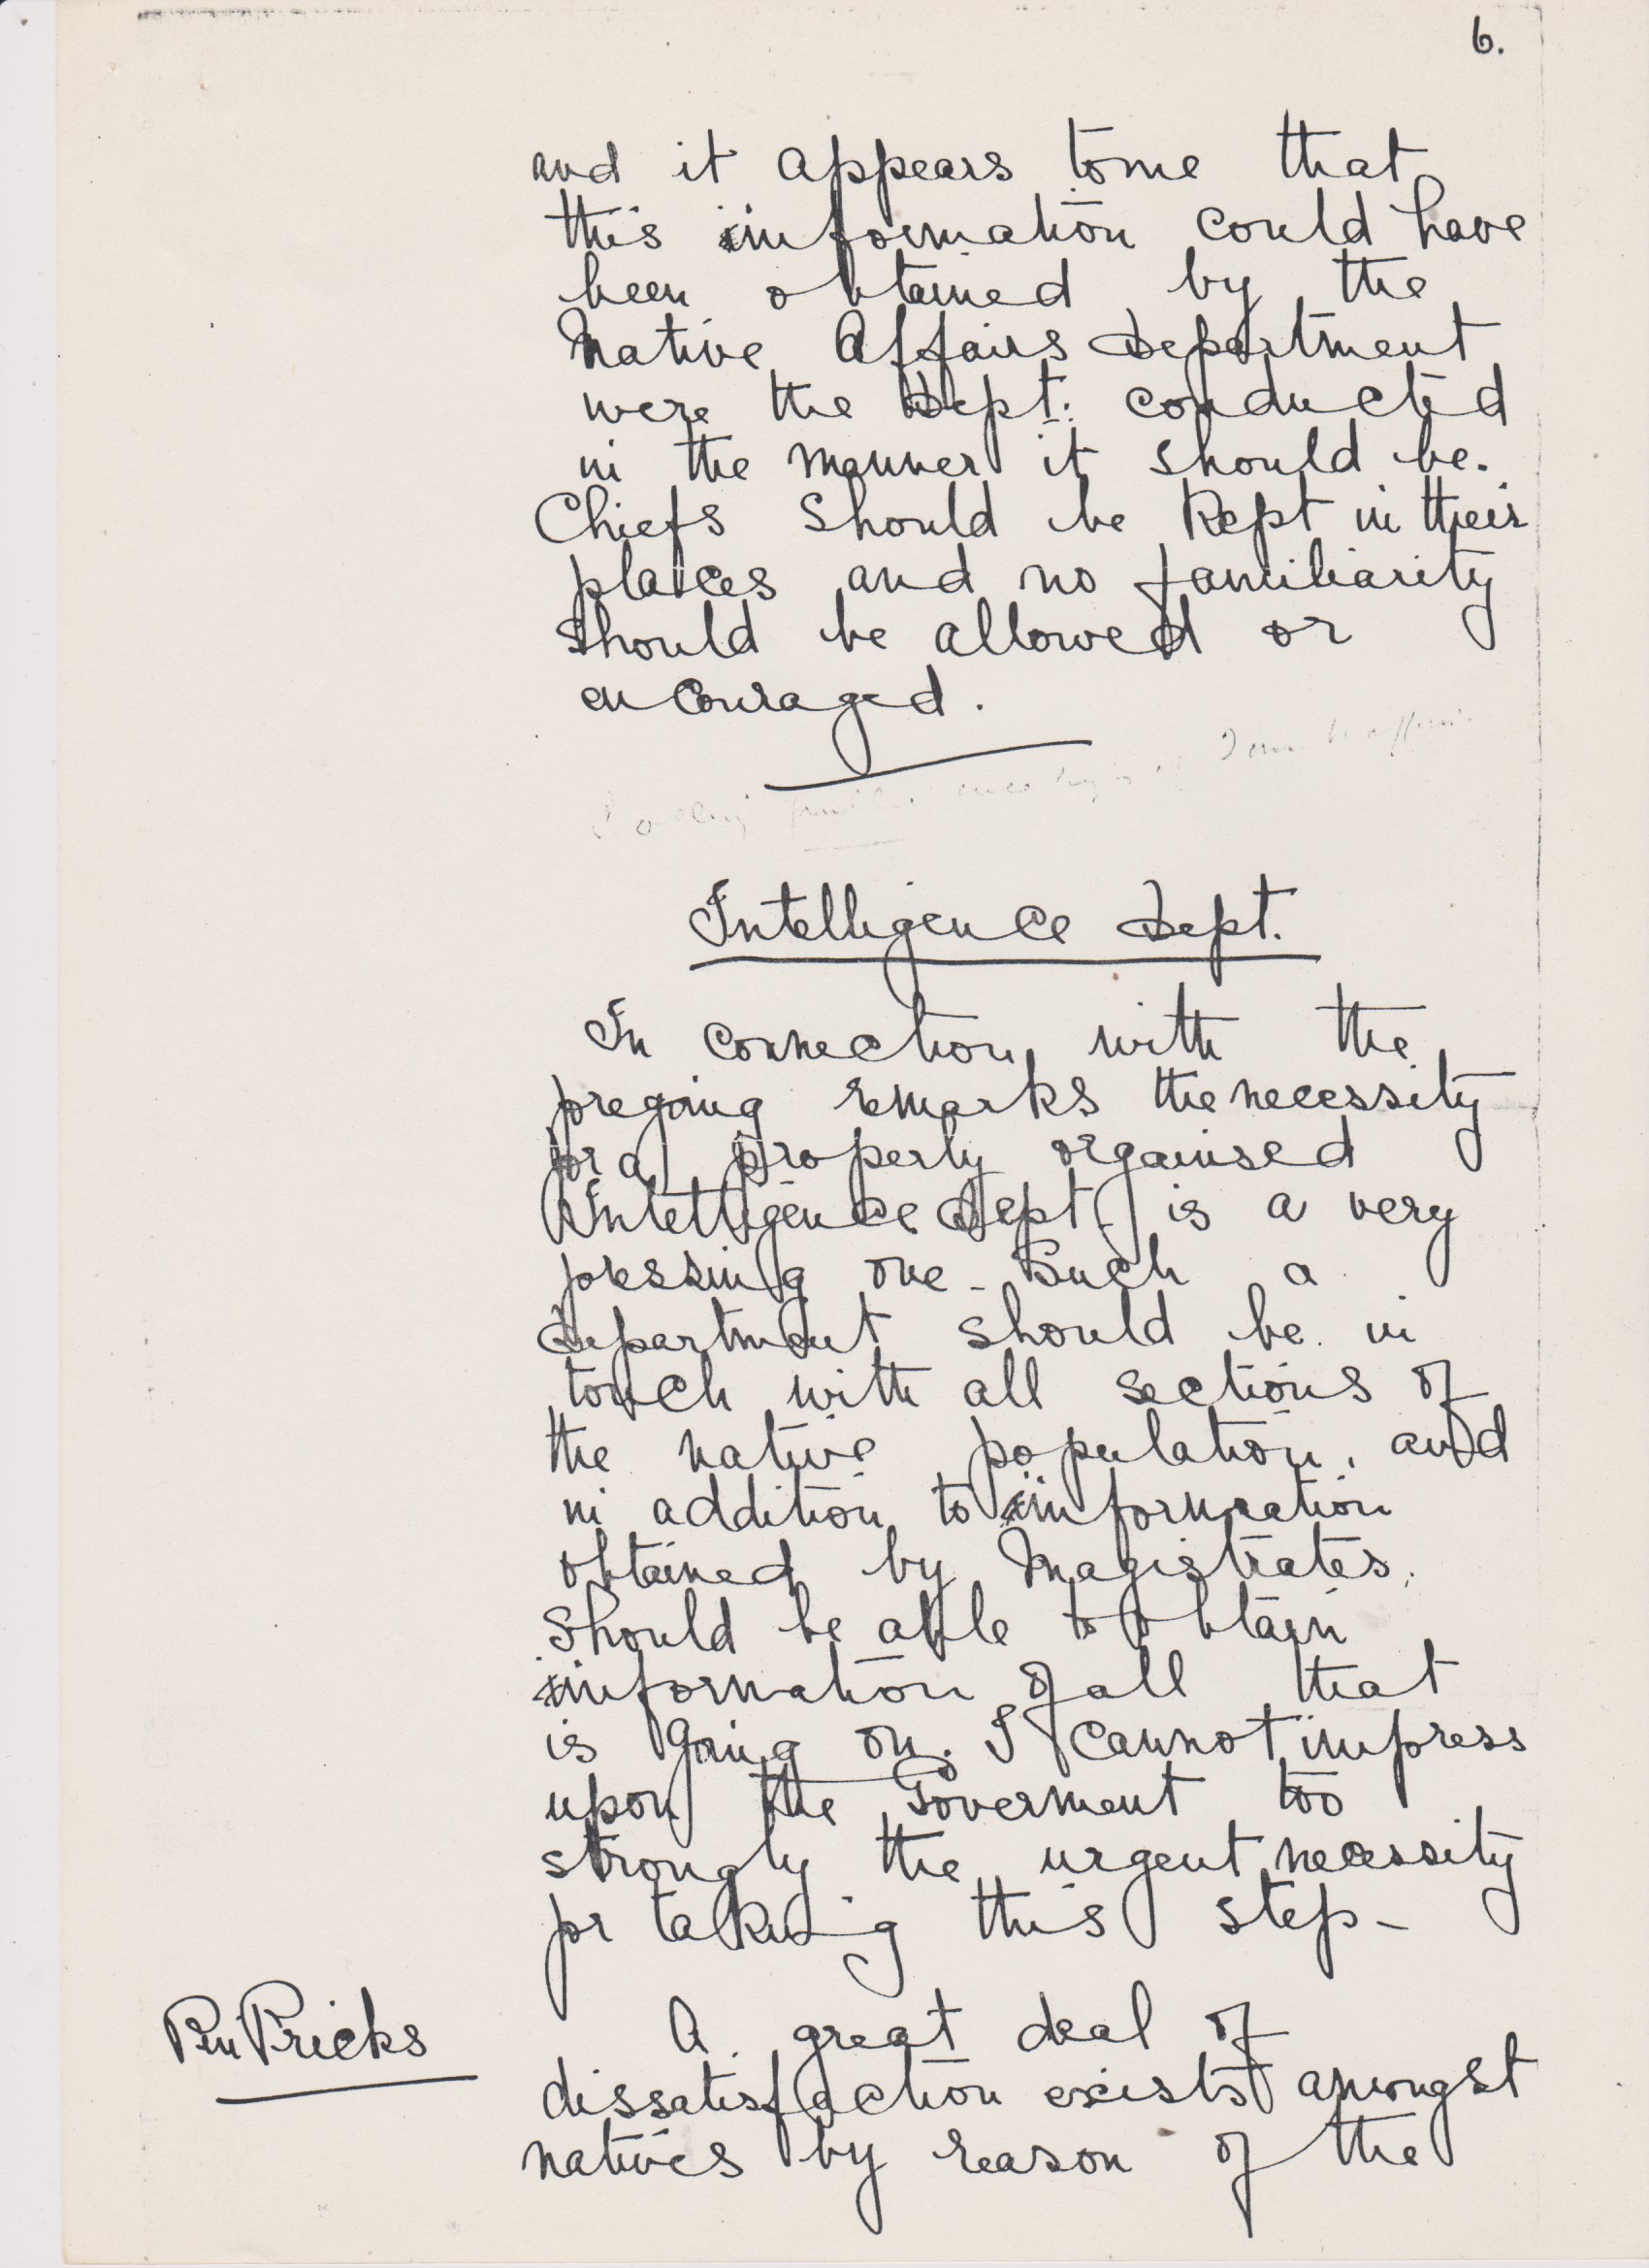 6.
and it appears to me that
this information could have
been obtained by the
Native Affairs Department
were the Dept. conducted
in the manner it should be.
Chiefs should be kept in their
places and no familiarity
should be allowed or
encouraged.
Intelligence Dept.
In connection with the
foregoing remarks the necessity
for a properly organised
Intelligence Dept. is a very
pressing one - Such a
department should be in
touch with all sections of
the native population, and
in addition to information
obtained by Magistrates,
should be able to obtain
information of all that
is going on. I cannot impress
upon the Goverment too
strongly the urgent necessity
for taking this step -
Pin Pricks
A great deal of
dissatisfaction exists amongst
natives by reason of the